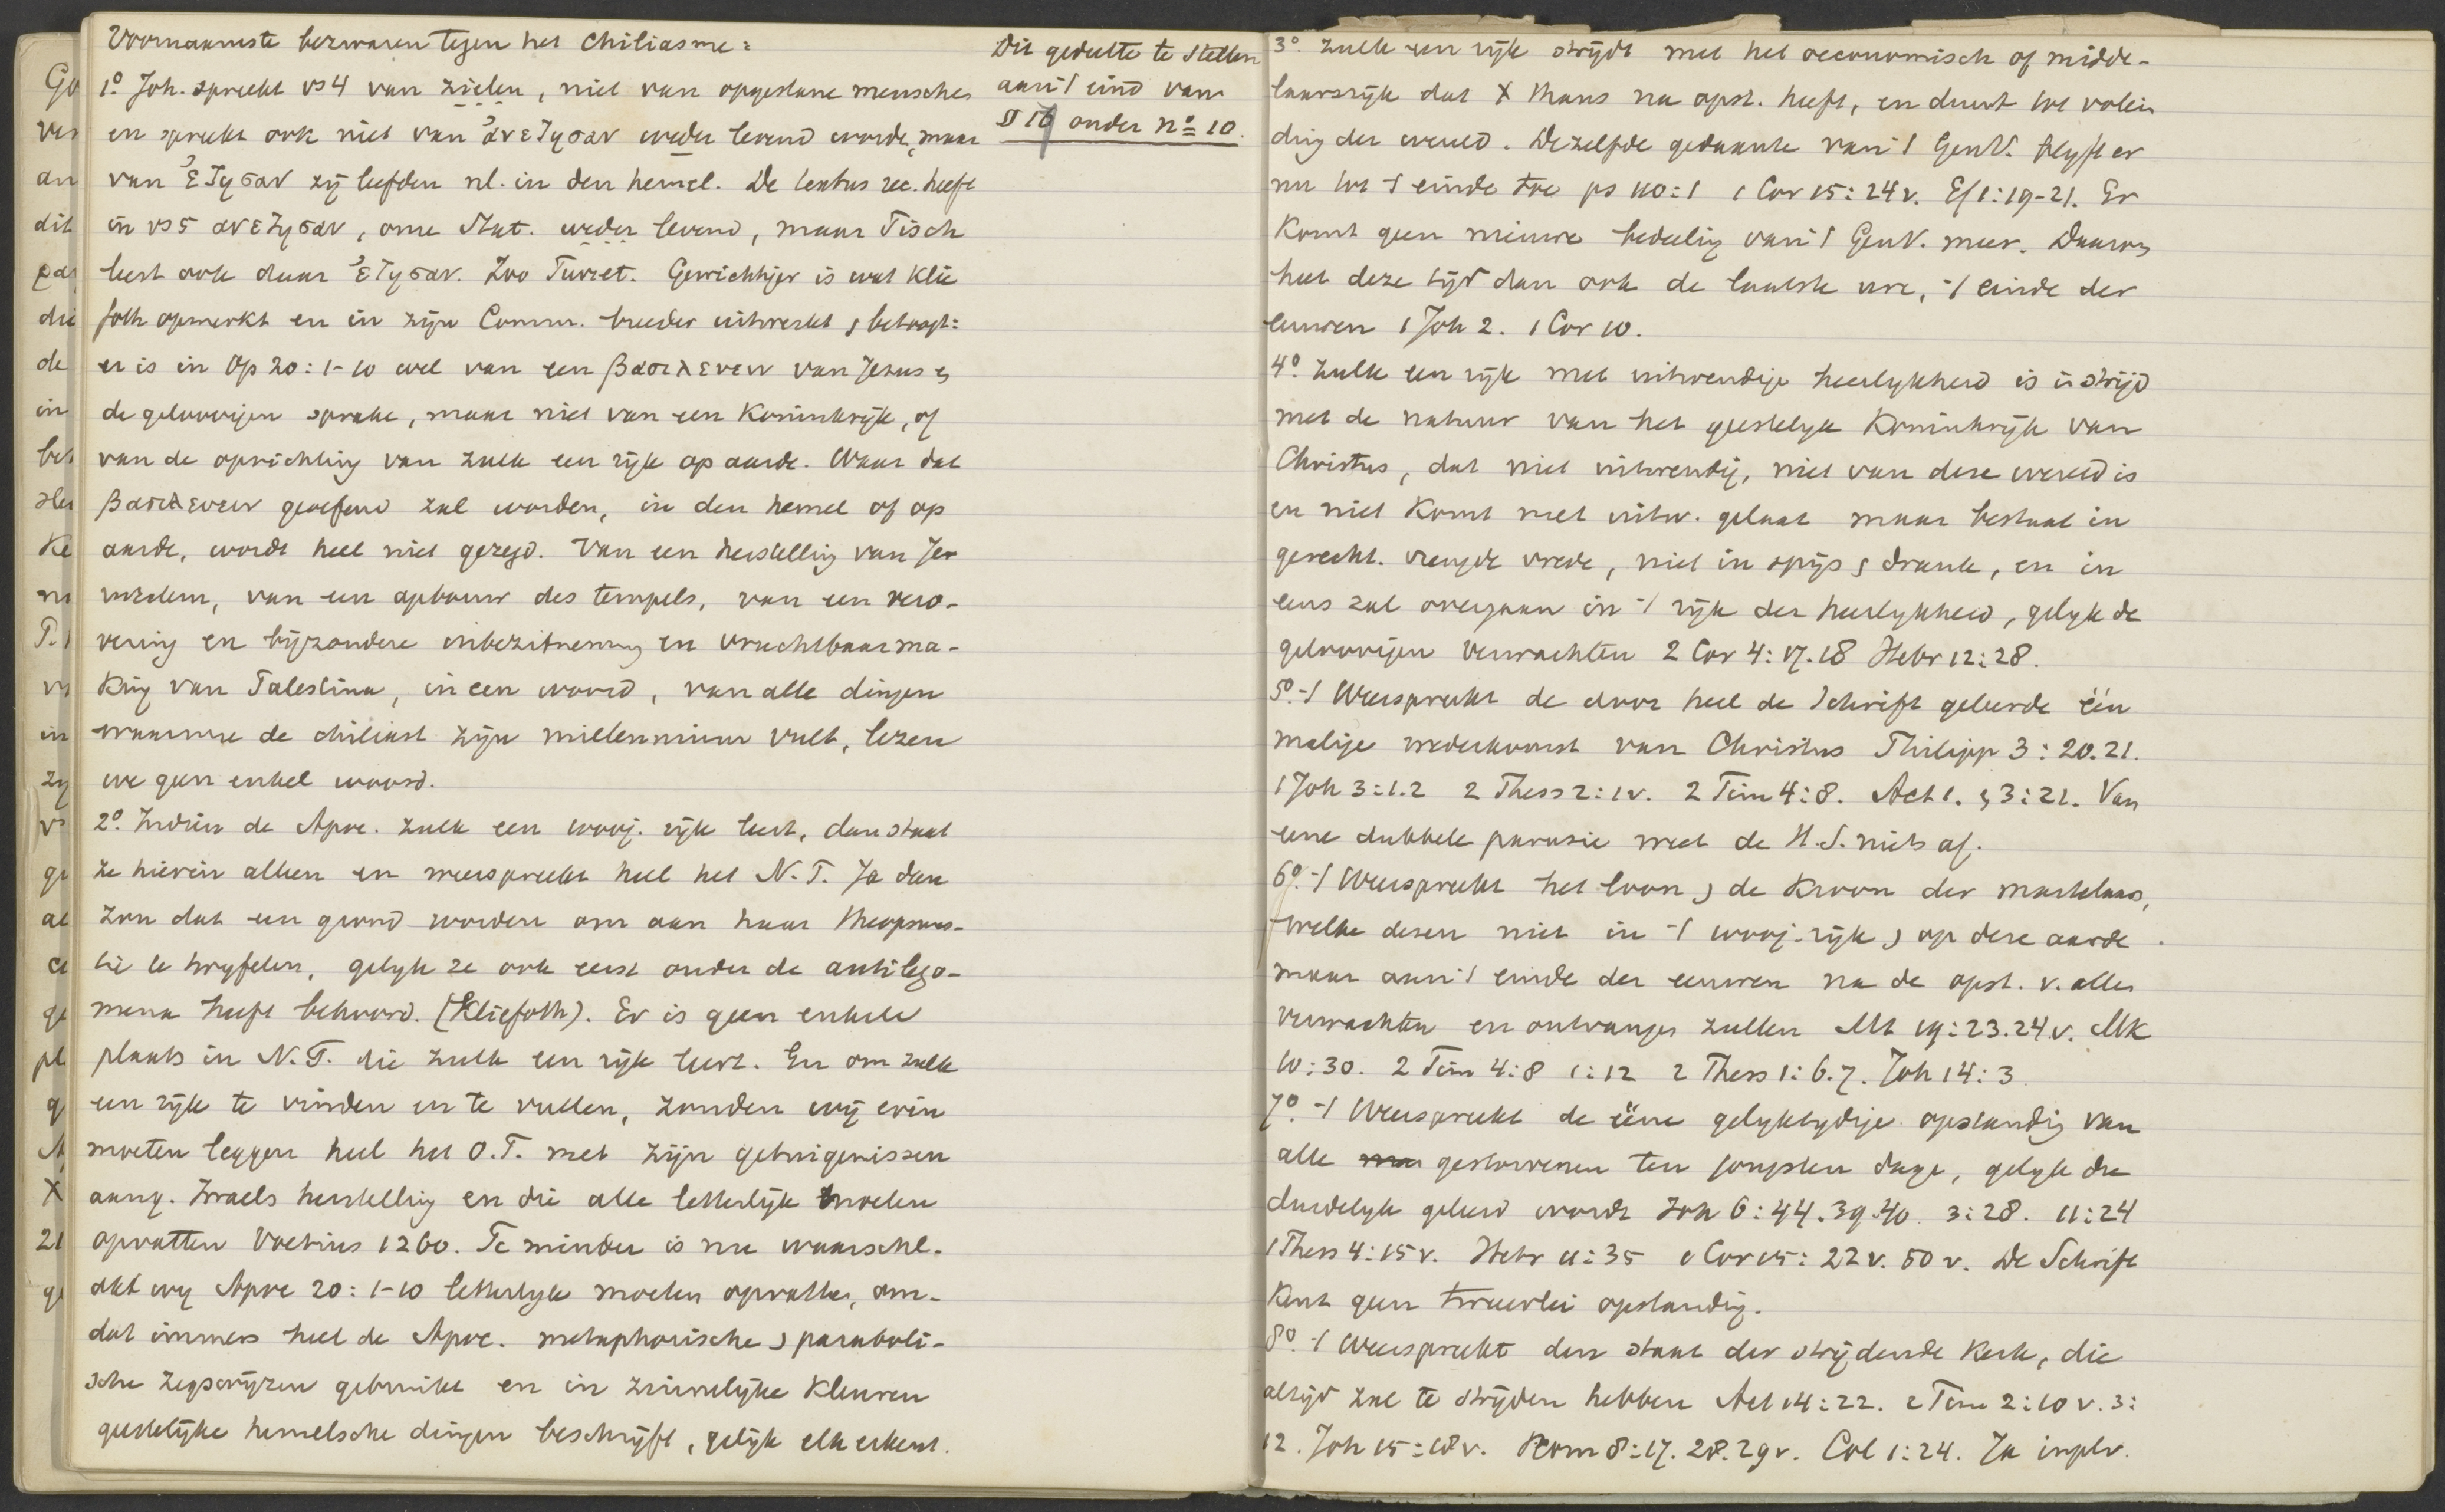 Voornaamste bezwaren tegen het Chiliasme:
1° Joh. spreekt vs 4 van zielen, niet van opgestane menschen
en spreekt ook niet van ἀνεζησαν weder levend worden, maar
van ἐζησαν zij leefden nl. in den hemel. De textus rec. heeft
in vs 5 ανεζησαν, onze Stat. weder levend, maar Tisch
leest ook daar ἐζησαν. Zoo Turret. Gewichtiger is wat Klie
foth opmerkt en in zijn Comm. breeder uitwerkt & betoogt:
er is in Op 20:1-10 wel van een βασιλευειν van Jezus &
de geloovigen sprake, maar niet van een Koninkrijk, of
van de oprichting van zulk een rijk op aarde. Waar dat
βασιλευειν geoefend zal worden, in den hemel of op
aarde, wordt heel niet gezegd. Van een herstelling van Jer
uzalem, van een opbouw des tempels, van een vero-
vering en bijzondere inbezitneming en vruchtbaarma-
king van Palestina, in een woord, van alle dingen
waarmee de chiliast zijn millennium vult, lezen
we geen enkel woord.
2° Indien de Apoc. zulk een 1000j. rijk leert, dan staat
ze hierin alleen en weerspreekt heel het N.T. Ja dan
zou dat een grond worden om aan haar theopneus-
tie te twyfelen, gelyk ze ook eerst onder de antilego-
mena heeft behoord. (Kliefoth). Er is geen enkele
plaats in N.T. die zulk een rijk leert. En om zulk
een rijk te vinden en te vullen, zouden wij erin
moeten leggen heel het O.T. met zijn getuigenissen
aang. Israels herstelling en die alle letterlijk moeten
opvatten Voetius 1260. Te minder is nu waarschl.
dat wy Apoc 20:1-10 letterlyk moeten opvatten, om-
dat immers heel de Apoc. metaphorische & paraboli-
sche zegswijzen gebruikt en in zinnelijke kleuren
geestelijke hemelsche dingen beschrijft, gelijk elk erkent.
Dit gedeelte te stellen
aan 't eind van
§ 16 onder n° 10.
3° Zulk een rijk strijdt met het oeconomisch of midde-
laarsrijk dat X thans na opst. heeft, en duurt tot volein
ding der wereld. Dezelfde gedaante van 't GenV. blyft er
nu tot 't einde toe ps 110:1 1 Cor 15:24v. Ef 1:19-21. Er
komt geen nieuwe bedeeling van 't GenV. meer. Daarom
heet deze tijd dan ook de laatste ure, 't einde der
eeuwen 1 Joh 2. 1 Cor 10.
4° Zulk een rijk met uitwendige heerlykheid is in strijd
met de natuur van het geestelyk Koninkrijk van
Christus, dat niet uitwendig, niet van deze wereld is
en niet komt met uitw. gelaat maar bestaat in
gerecht. vreugde vrede, niet in spijs & drank, en in
eens zal overgaan in 't rijk der heerlykheid, gelyk de
geloovigen verwachten 2 Cor 4:17.18 Hebr 12:28.
5° 't Weerspreekt de door heel de Schrift geleerde één
malige wederkomst van Christus Philipp 3:20.21.
1 Joh 3:1.2 2 Thess 2:1v. 2 Tim 4:8. Act 1. & 3:21. Van
eene dubbele parusie weet de H.S. niets af.
6° 't Weerspreekt het loon & de kroon der martelaars,
welke dezen niet in 't 1000j-rijk & op deze aarde
maar aan 't einde der eeuwen na de opst. v. allen
verwachten en ontvangen zullen Mt 19:23.24.v. Mk
10:30. 2 Tim 4:8 1:12 2 Thess 1:6.7. Joh 14:3
7° 't Weerspreekt de ééne gelyktydige opstanding van
alle gestorvenen ten jongsten dage, gelyk die
duidelyk geleerd wordt Joh 6:44.39.40. 3:28. 11:24
1 Thess 4:15v. Hebr 11:35 1 Cor 15:22v. 50v. De Schrift
kent geen tweeerlei opstanding.
8° 't Weerspreekt den staat der strijdende Kerk, die
altijd zal te strijden hebben Act 14:22. 2 Tim 2:10v. 3:
12. Joh 15:18v. Rom 8:17.28.29v. Col 1:24. Ja